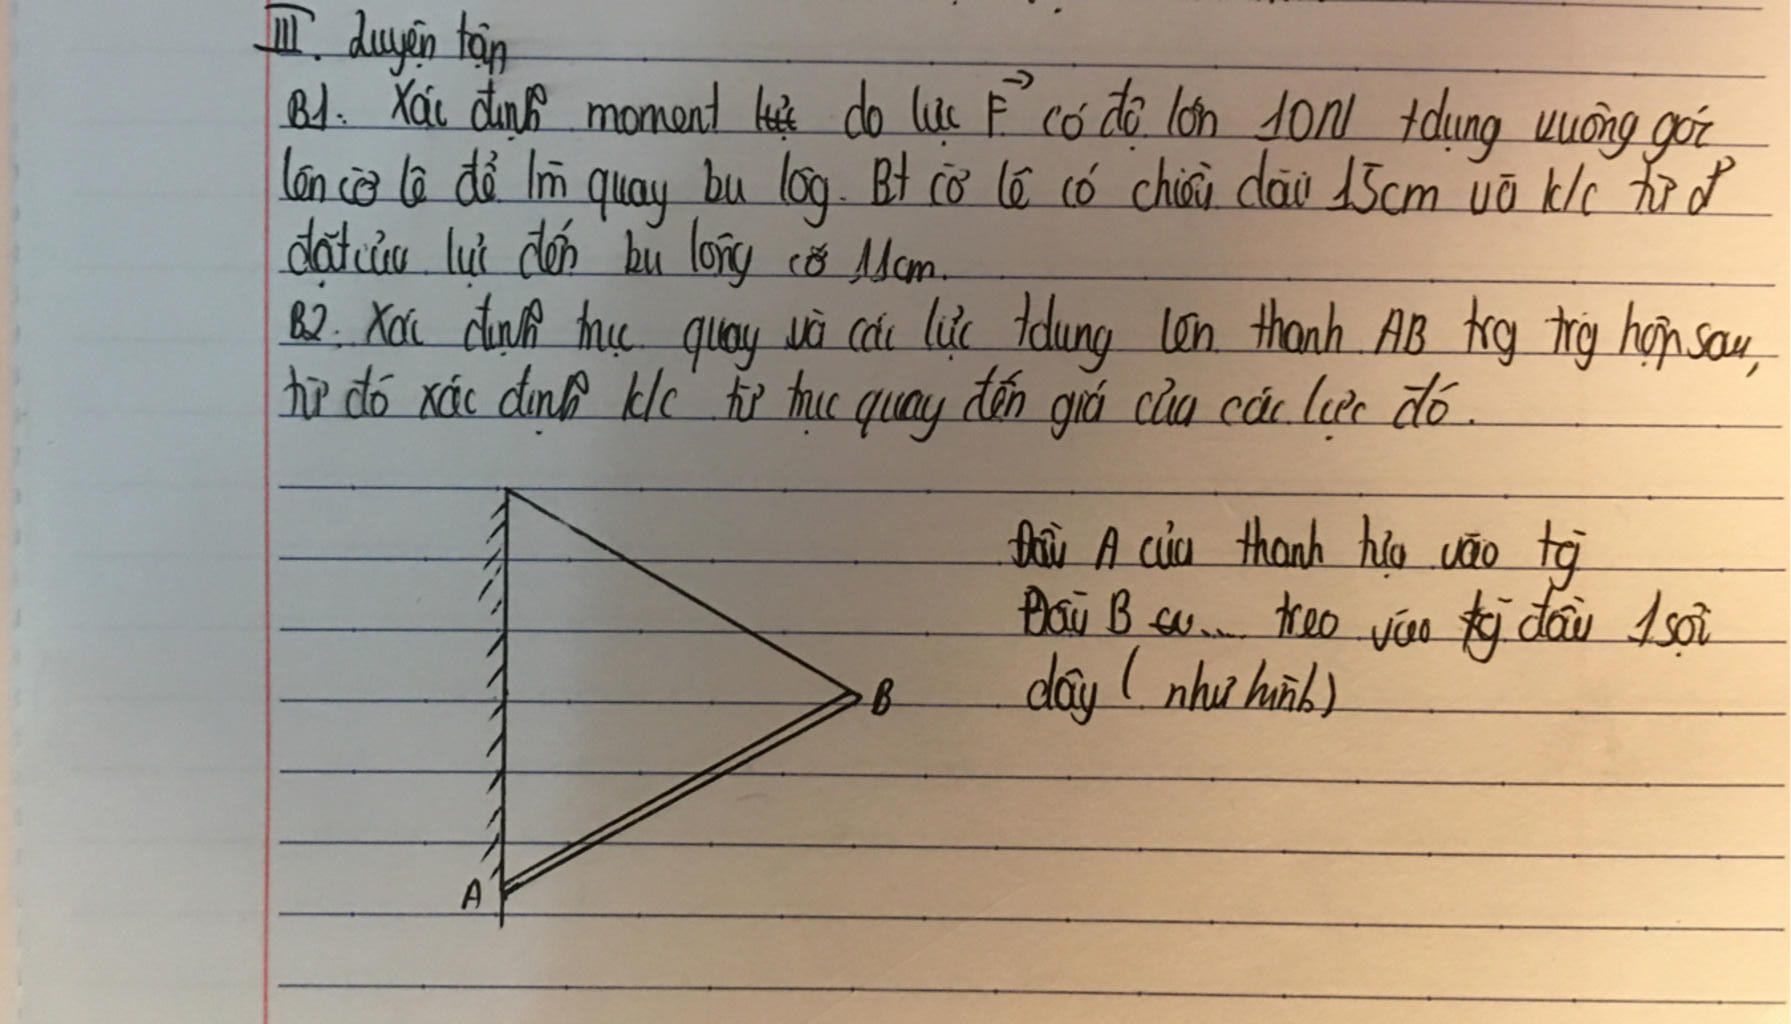 III. Luyện tập
B1. Xác định moment lực do lực F→ có độ lớn 10N tdụng vuông góc
lên cờ lê để lm̄ quay bu lōg. Bt cờ lê có chiều dài 15cm và k/c từ đ²
đặt của lực đến bu lōng cỡ 11cm.
B2. Xác định trục quay và các lực tdụng lên thanh AB trg trg hợp sau,
từ đó xác định k/c từ trục quay đến giá của các lực đó.
Đầu A của thanh tựa vào tg̀
Đầu B .... treo vào tg̀ đầu 1 sợi
dây ( như hình)
B
A